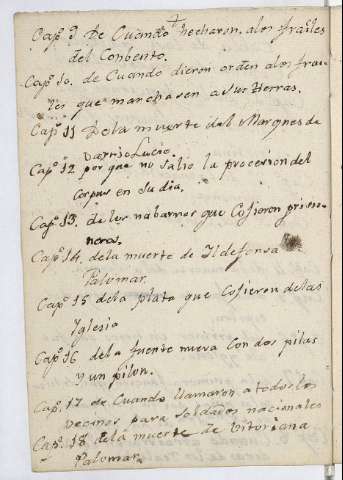 Capº 9 De Cuando hecharon alos frailes
del Conbento.
Capº 10. de Cuando dieron orden alos frai
les que marchasen a sus tierras.
Capº 11 De la muerte del Marques de
Capº 12 por que no salio la procesion del
Corpus en su dia.
Capº 13. de los nabarros que Cojieron prisio
neros.
Capº 14. dela muerte de Ildefonsa
Palomar.
Capº 15 dela plata que Cojieron delas
Iglesia
Capº 16 dela fuente nueva con dos pilas
y un pilon.
Capº 17 de Cuando llamaron a todos los
vecinos para soldados nacionales
Capº 18 dela muerte de Vitoriana
Palomar.